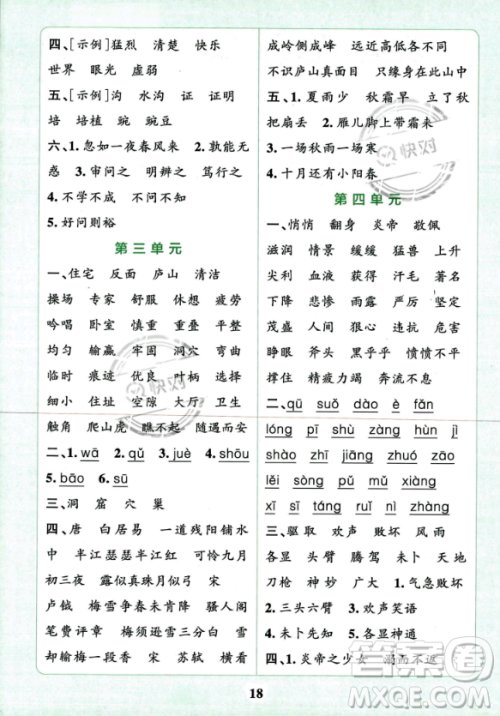 四、[示例]猛烈 清楚 快乐
世界 眼光 虚弱
五、[示例]沟 水沟 证 证明
培 培植 豌 豌豆
六、1.忽如一夜春风来 2.孰能无
惑 3.审问之 明辨之 笃行之
4.不学不成 不问不知
5.好问则裕
第三单元
一、住宅 反面 庐山 清洁
操场 专家 舒服 休想 疲劳
吟唱 卧室 慎重 重叠 平整
均匀 输赢 牢固 洞穴 弯曲
临时 痕迹 优良 叶柄 选择
细小 住址 空隙 大厅 卫生
触角 爬山虎 瞧不起 随遇而安
二、1.wā 2.kǒng 3.juè 4.shōu
5.bāo 6.sū
三、洞 窟 穴 巢
四、唐 白居易 一道残阳铺水
中 半江瑟瑟半江红 可怜九月
初三夜 露似真珠月似弓 宋
卢钺 梅雪争春未肯降 骚人阁
笔费评章 梅须逊雪三分白 雪
却输梅一段香 宋 苏轼 横看
成岭侧成峰 远近高低各不同
不识庐山真面目 只缘身在此山中
五、1.夏雨少 秋霜早 2.立了秋
把扇丢 2.雁儿脚上带霜来
3.一场秋雨一场寒
4.十月还有小阳春
第四单元
一、悄悄 翻身 炎帝 敬佩
滋润 情景 缓缓 猛兽 上升
尖利 血液 获得 汗毛 茂密
下降 悲惨 雨露 严厉 坚定
茂盛 人类 违抗 经受 恼怒
睁眼 斧头 黑乎乎 愤愤不平
撑住 精疲力竭 奔流不息
二、qū shū dào è fǎn
lóng pī shǔ pèng tīng
shào zhǎo pī zhàng duàn
lěi sǒng páng kuì xiàng
xī sī tāng ruǐ nì zhàng
三、驱取 欢声 败坏 风雨
各显 头臂 腾驾 未卜 天地
刀枪 神妙 广大 1.气急败坏
2.三头六臂 3.欢声笑语
4.未卜先知 5.各显神通
四、1.炎帝之少女 溺而不返
18
快对
快对
答案圈
MXQE.COM